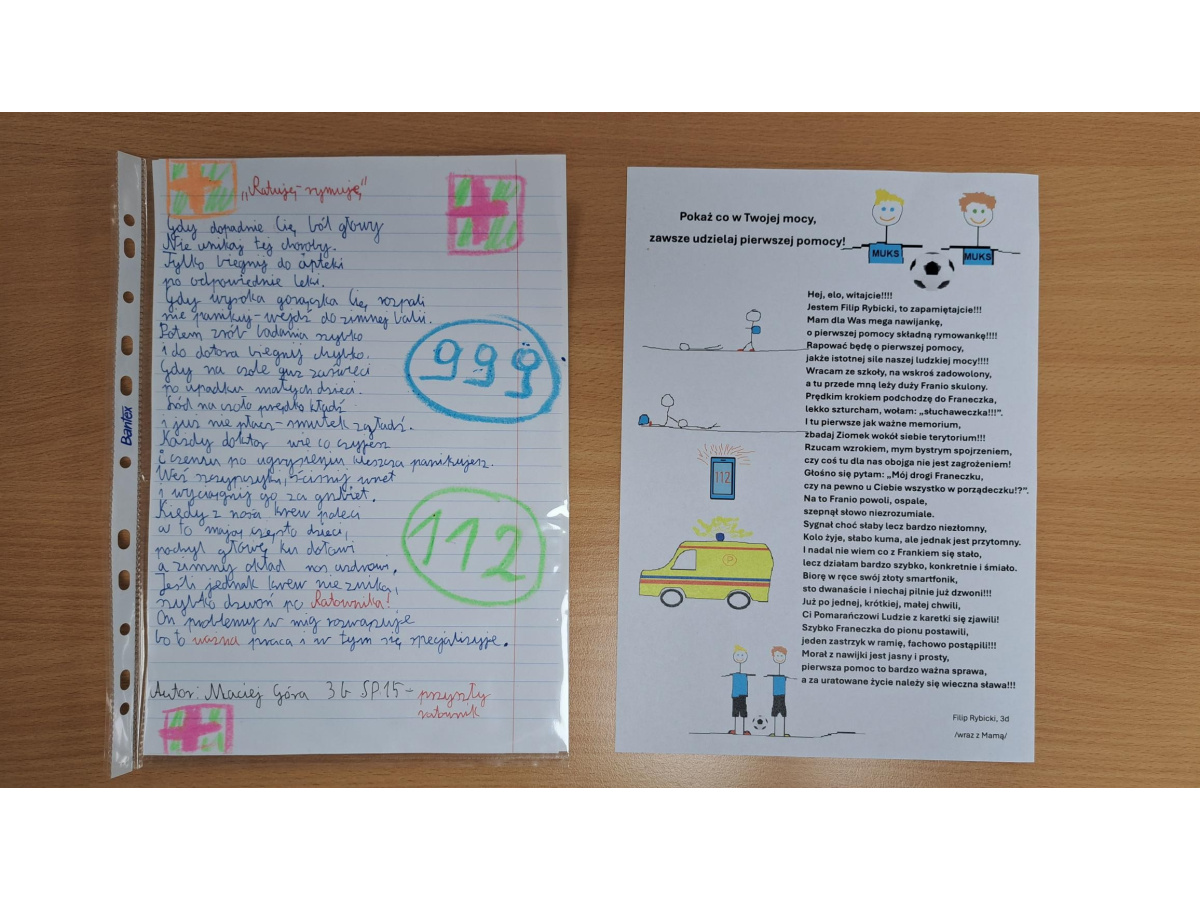 „Ratuję-rymuję"
Gdy dopadnie Cię ból głowy
Nie unikaj tej choroby.
Tylko biegnij do apteki
po odpowiednie leki.
Gdy wysoka gorączka Cię rozpali
nie panikuj-wejdź do zimnej balii.
Potem zrób badania szybko
i do dotora biegnij chybko.
Gdy na czole guz zaświeci
po upadku małych dzieci.
Lód na czoło prędko kładź
i już nie płacz-smutek zgładź.
Każdy doktor wie co czujesz
i czemu po ugryzieniu kleszcza panikujesz.
Weź szczypczyki, ściśnij wnet
i wyciągnij go za grzbiet.
Kiedy z nosa krew poleci
a to mają często dzieci,
pochyl głowę ku dołowi
a zimny okład nos uzdrowi.
Jeśli jednak krew nie znika,
szybko dzwoń po Ratownika!
On problemy w mig rozwiązuje
bo to ważna praca i w tym się specjalizuje.
Autor: Maciej Góra 3b SP15 - przyszły
ratownik
999
112
Bantex
Pokaż co w Twojej mocy,
zawsze udzielaj pierwszej pomocy!
MUKS
MUKS
Hej, elo, witajcie!!!!
Jestem Filip Rybicki, to zapamiętajcie!!!
Mam dla Was mega nawijankę,
o pierwszej pomocy składną rymowankę!!!!
Rapować będę o pierwszej pomocy,
jakże istotnej sile naszej ludzkiej mocy!!!!
Wracam ze szkoły, na wskroś zadowolony,
a tu przede mną leży duży Franio skulony.
Prędkim krokiem podchodzę do Franeczka,
lekko szturcham, wołam: „słuchaweczka!!!".
I tu pierwsze jak ważne memorium,
zbadaj Ziomek wokół siebie terytorium!!!
Rzucam wzrokiem, mym bystrym spojrzeniem,
czy coś tu dla nas obojga nie jest zagrożeniem!
Głośno się pytam: „Mój drogi Franeczku,
czy na pewno u Ciebie wszystko w porządeczku!?".
Na to Franio powoli, ospale,
szepnął słowo niezrozumiale.
Sygnał choć słaby lecz bardzo niezłomny,
Kolo żyje, słabo kuma, ale jednak jest przytomny.
I nadal nie wiem co z Frankiem się stało,
lecz działam bardzo szybko, konkretnie i śmiało.
Biorę w ręce swój złoty smartfonik,
sto dwanaście i niechaj pilnie już dzwoni!!!
Już po jednej, krótkiej, małej chwili,
Ci Pomarańczowi Ludzie z karetki się zjawili!
Szybko Franeczka do pionu postawili,
jeden zastrzyk w ramię, fachowo postąpili!!!
Morał z nawijki jest jasny i prosty,
pierwsza pomoc to bardzo ważna sprawa,
a za uratowane życie należy się wieczna sława!!!
112
P
Filip Rybicki, 3d
/wraz z Mamą/